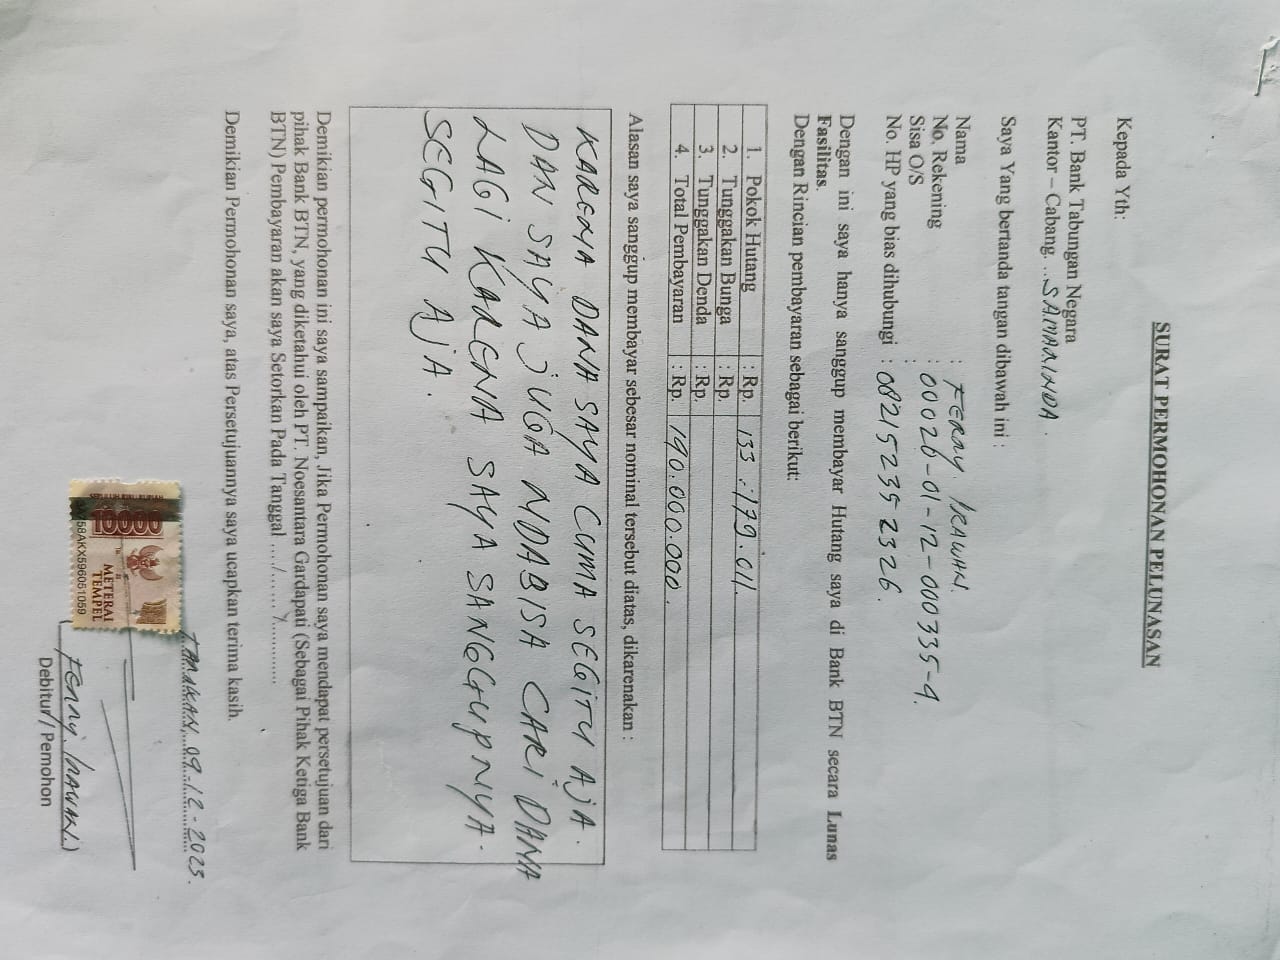 SURAT PERMOHONAN PELUNASAN
Kepada Yth:
PT. Bank Tabungan Negara
Kantor – Cabang ...SAMARINDA.
Saya Yang bertanda tangan dibawah ini :
Nama : FERRY IRAWAN.
No. Rekening : 00026-01-12-000335-9.
Sisa O/S :
No. HP yang bias dihubungi : 082152352326.
Dengan ini saya hanya sanggup membayar Hutang saya di Bank BTN secara Lunas
Fasilitas.
Dengan Rincian pembayaran sebagai berikut:
1. Pokok Hutang : Rp. 133.179.011.
2. Tunggakan Bunga : Rp.
3. Tunggakan Denda : Rp.
4. Total Pembayaran : Rp. 190.000.000.
Alasan saya sanggup membayar sebesar nominal tersebut diatas, dikarenakan :
KARENA DANA SAYA CUMA SEGITU AJA.
DAN SAYA JUGA NDABISA CARI DANA
LAGI KARENA SAYA SANGGUPNYA.
SEGITU AJA.
Demikian permohonan ini saya sampaikan, Jika Permohonan saya mendapat persetujuan dari
pihak Bank BTN, yang diketahui oleh PT. Noesantara Gardapati (Sebagai Pihak Ketiga Bank
BTN) Pembayaran akan saya Setorkan Pada Tanggal ..../....../............
Demikian Permohonan saya, atas Persetujuannya saya ucapkan terima kasih.
TARAKAN, 09-12-2023.
SEPULUH RIBU RUPIAH
10000
METERAI
TEMPEL
58AKX596051059
(Ferry Irawan.)
Debitur / Pemohon